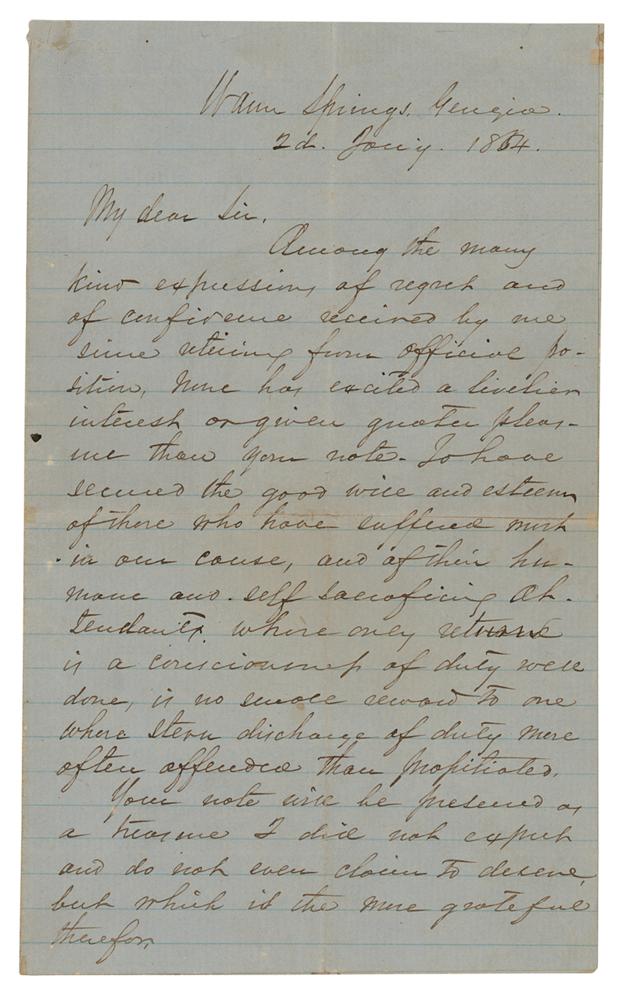 Warm Springs, Georgia.
2d. Jan'y. 1864.
My dear Sir,
Among the many
kind expressions of regret and
of confidence received by me
since retiring from official po-
sition, none has excited a livelier
interest or given greater pleas-
ure than your note. To have
secured the good will and esteem
of those who have suffered most
in our cause, and of their hu-
mane and self sacrificing At-
tendants, whose only return
is a consciousness of duty well
done, is no small reward to one
whose stern discharge of duty more
often offended than propitiated.
Your note will be preserved as
a treasure I did not expect
and do not even claim to deserve,
but which is the more grateful
therefor,